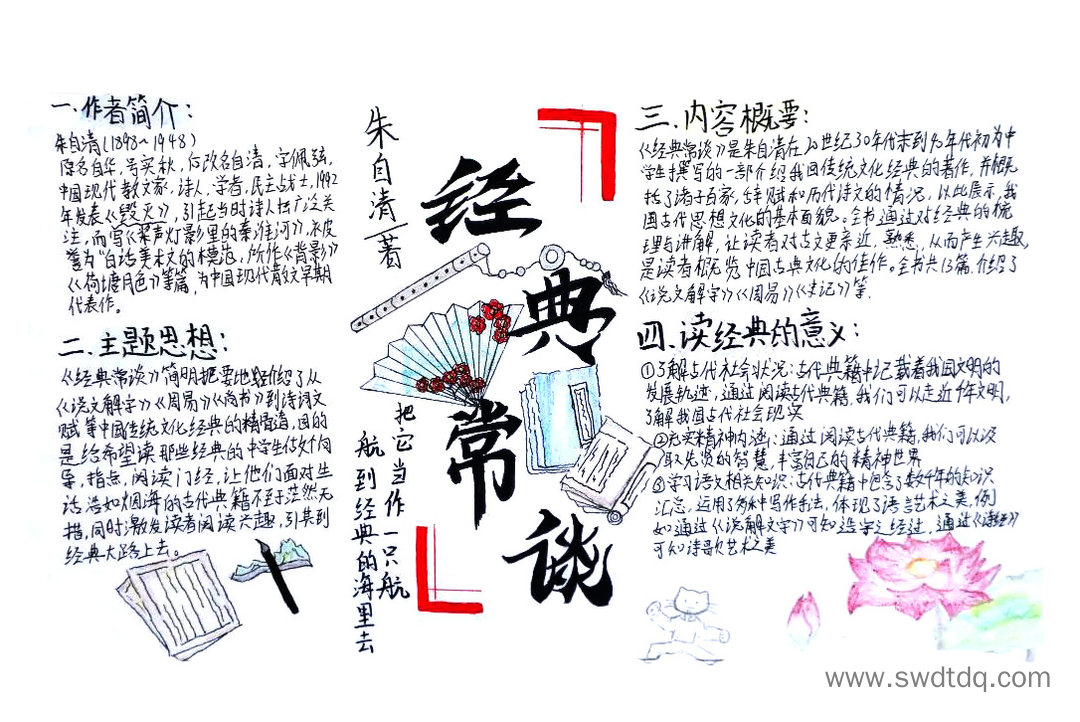 一、作者简介:
朱自清(1898~1948)
原名自华,号实秋,后改名自清,字佩弦,
中国现代散文家、诗人、学者、民主战士,1992
年发表《毁灭》,引起当时诗人坛广泛关
注,而写《桨声灯影里的秦淮河》,被
誉为"白话美术文的模范,所作《背影》
《荷塘月色》等篇,为中国现代散文早期
代表作。
二、主题思想:
《经典常谈》简明扼要地介绍了从
《说文解字》《周易》《尚书》到诗词文
赋等中国传统文化经典的精骨,目的
是给希望读那些经典的中学生做个向
导,指点,阅读门径,让他们面对
浩如烟海的古代典籍不至于茫然无
措,同时激发读者阅读兴趣,引其到
经典大路上去。
朱自清/著
经典常谈
把它当作一只航
航到经典的海里去
三、内容概要:
《经典常谈》是朱自清在20世纪30年代末到40年代初为中
学生撰写的一部介绍我国传统文化经典的著作,并概
括了诸子百家,辞赋和历代诗文的情况,以此展示,我
国古代思想文化的基本面貌。全书通过对经典的梳
理与讲解,让读者对古文更亲近,熟悉,从而产生兴趣,
是读者概览中国古典文化的佳作。全书共13篇,介绍了
《说文解字》《周易》《史记》等.
四、读经典的意义:
①了解古代社会状况:古代典籍中记载着我国文明的
发展轨迹,通过阅读古代典籍,我们可以走近千年文明,
了解我国古代社会现实
②充实精神内涵:通过阅读古代典籍,我们可以汲
取先贤的智慧,丰富自己的精神世界
③学习语文相关知识:古代典籍中包含了数千年的知识
汇总,运用了多种写作手法,体现了语言艺术之美,例
如通过《说解文字》可知造字之经过,通过《诗经》
可知诗歌艺术之美
www.swdtdq.com